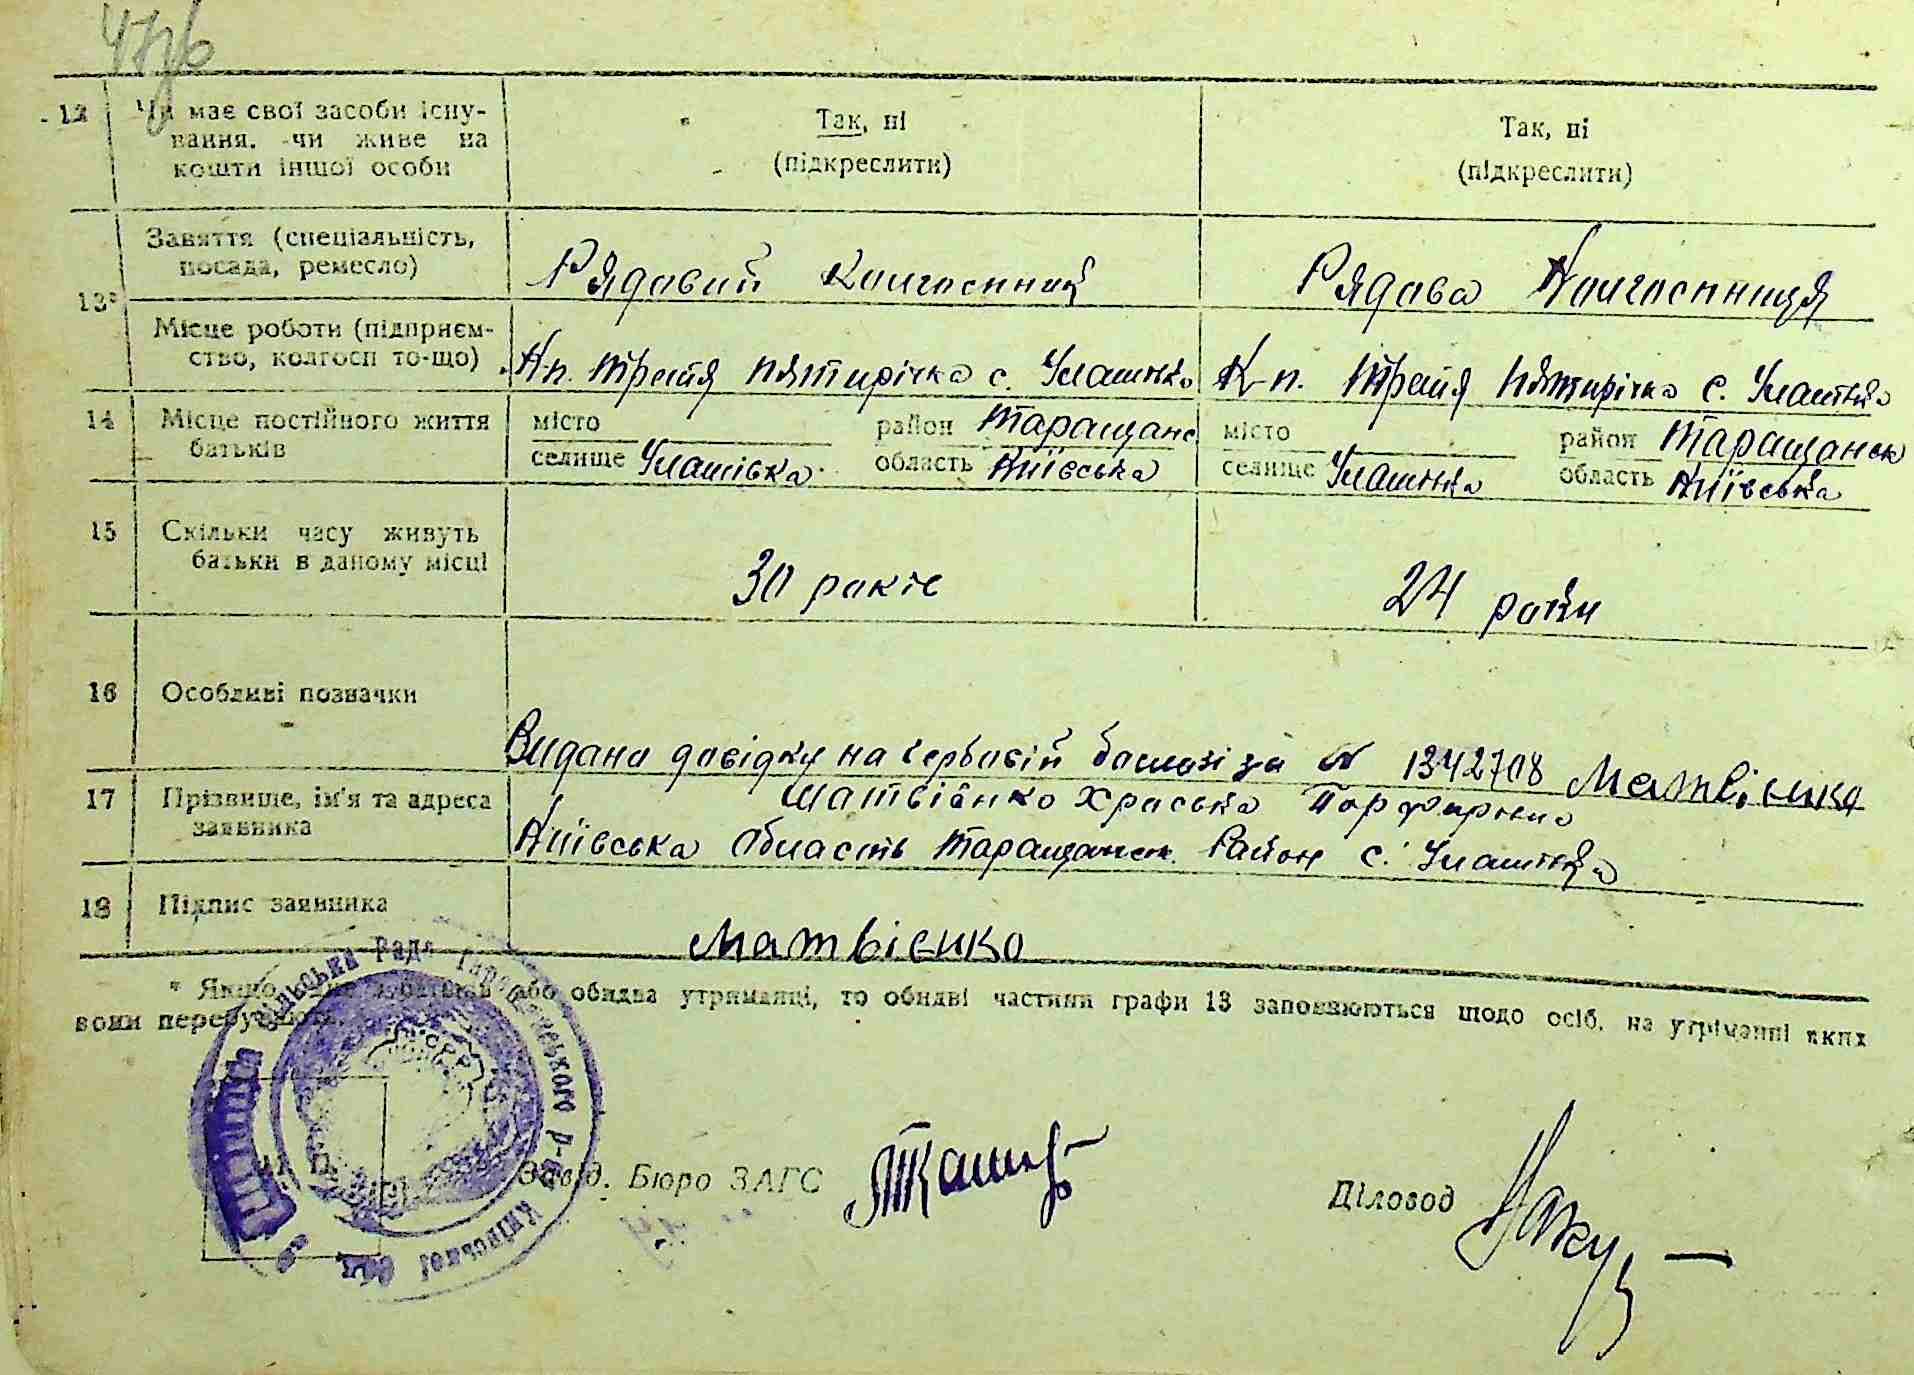 12 Чи має свої засоби існу-
вання. чи живе на
кошти іншої особи
Так, ні
(підкреслити)
Так, ні
(підкреслити)
13*
Заняття (спеціальність,
посада, ремесло)
Рядовий Колгоспний
Рядова Колгоспниця
Місце роботи (підприєм-
ство, колгосп то-що)
Кп. Третя Пятирічка с. Улашівка
К-п. Третя Пятирічка с. Улашівка
14 Місце постійного життя
батьків
місто район Таращанс
селище Улашівка область Київська
місто район Таращанськ
селище Улашівка область Київська
15 Скільки часу живуть
батьки в даному місці
30 років
24 роки
16 Особливі позначки
Видано довідку на гербовій бомазі за № 1342708 Матвієнко
17 Прізвище, ім'я та адреса
заявника
Матвієнко Хриська Порфирівна
Київська Область Таращанськ. Район с. Улашівка
18 Підпис заявника
Матвієнко
* Якщо або обидва утриманці, то обидві частини графи 13 заповнюються щодо осіб, на утриманні яких
вони перебувають.
Сільська Рада Таращанського р-ну Київської Обл.
УСРР
М. П.
Завід. Бюро ЗАГС
Діловод